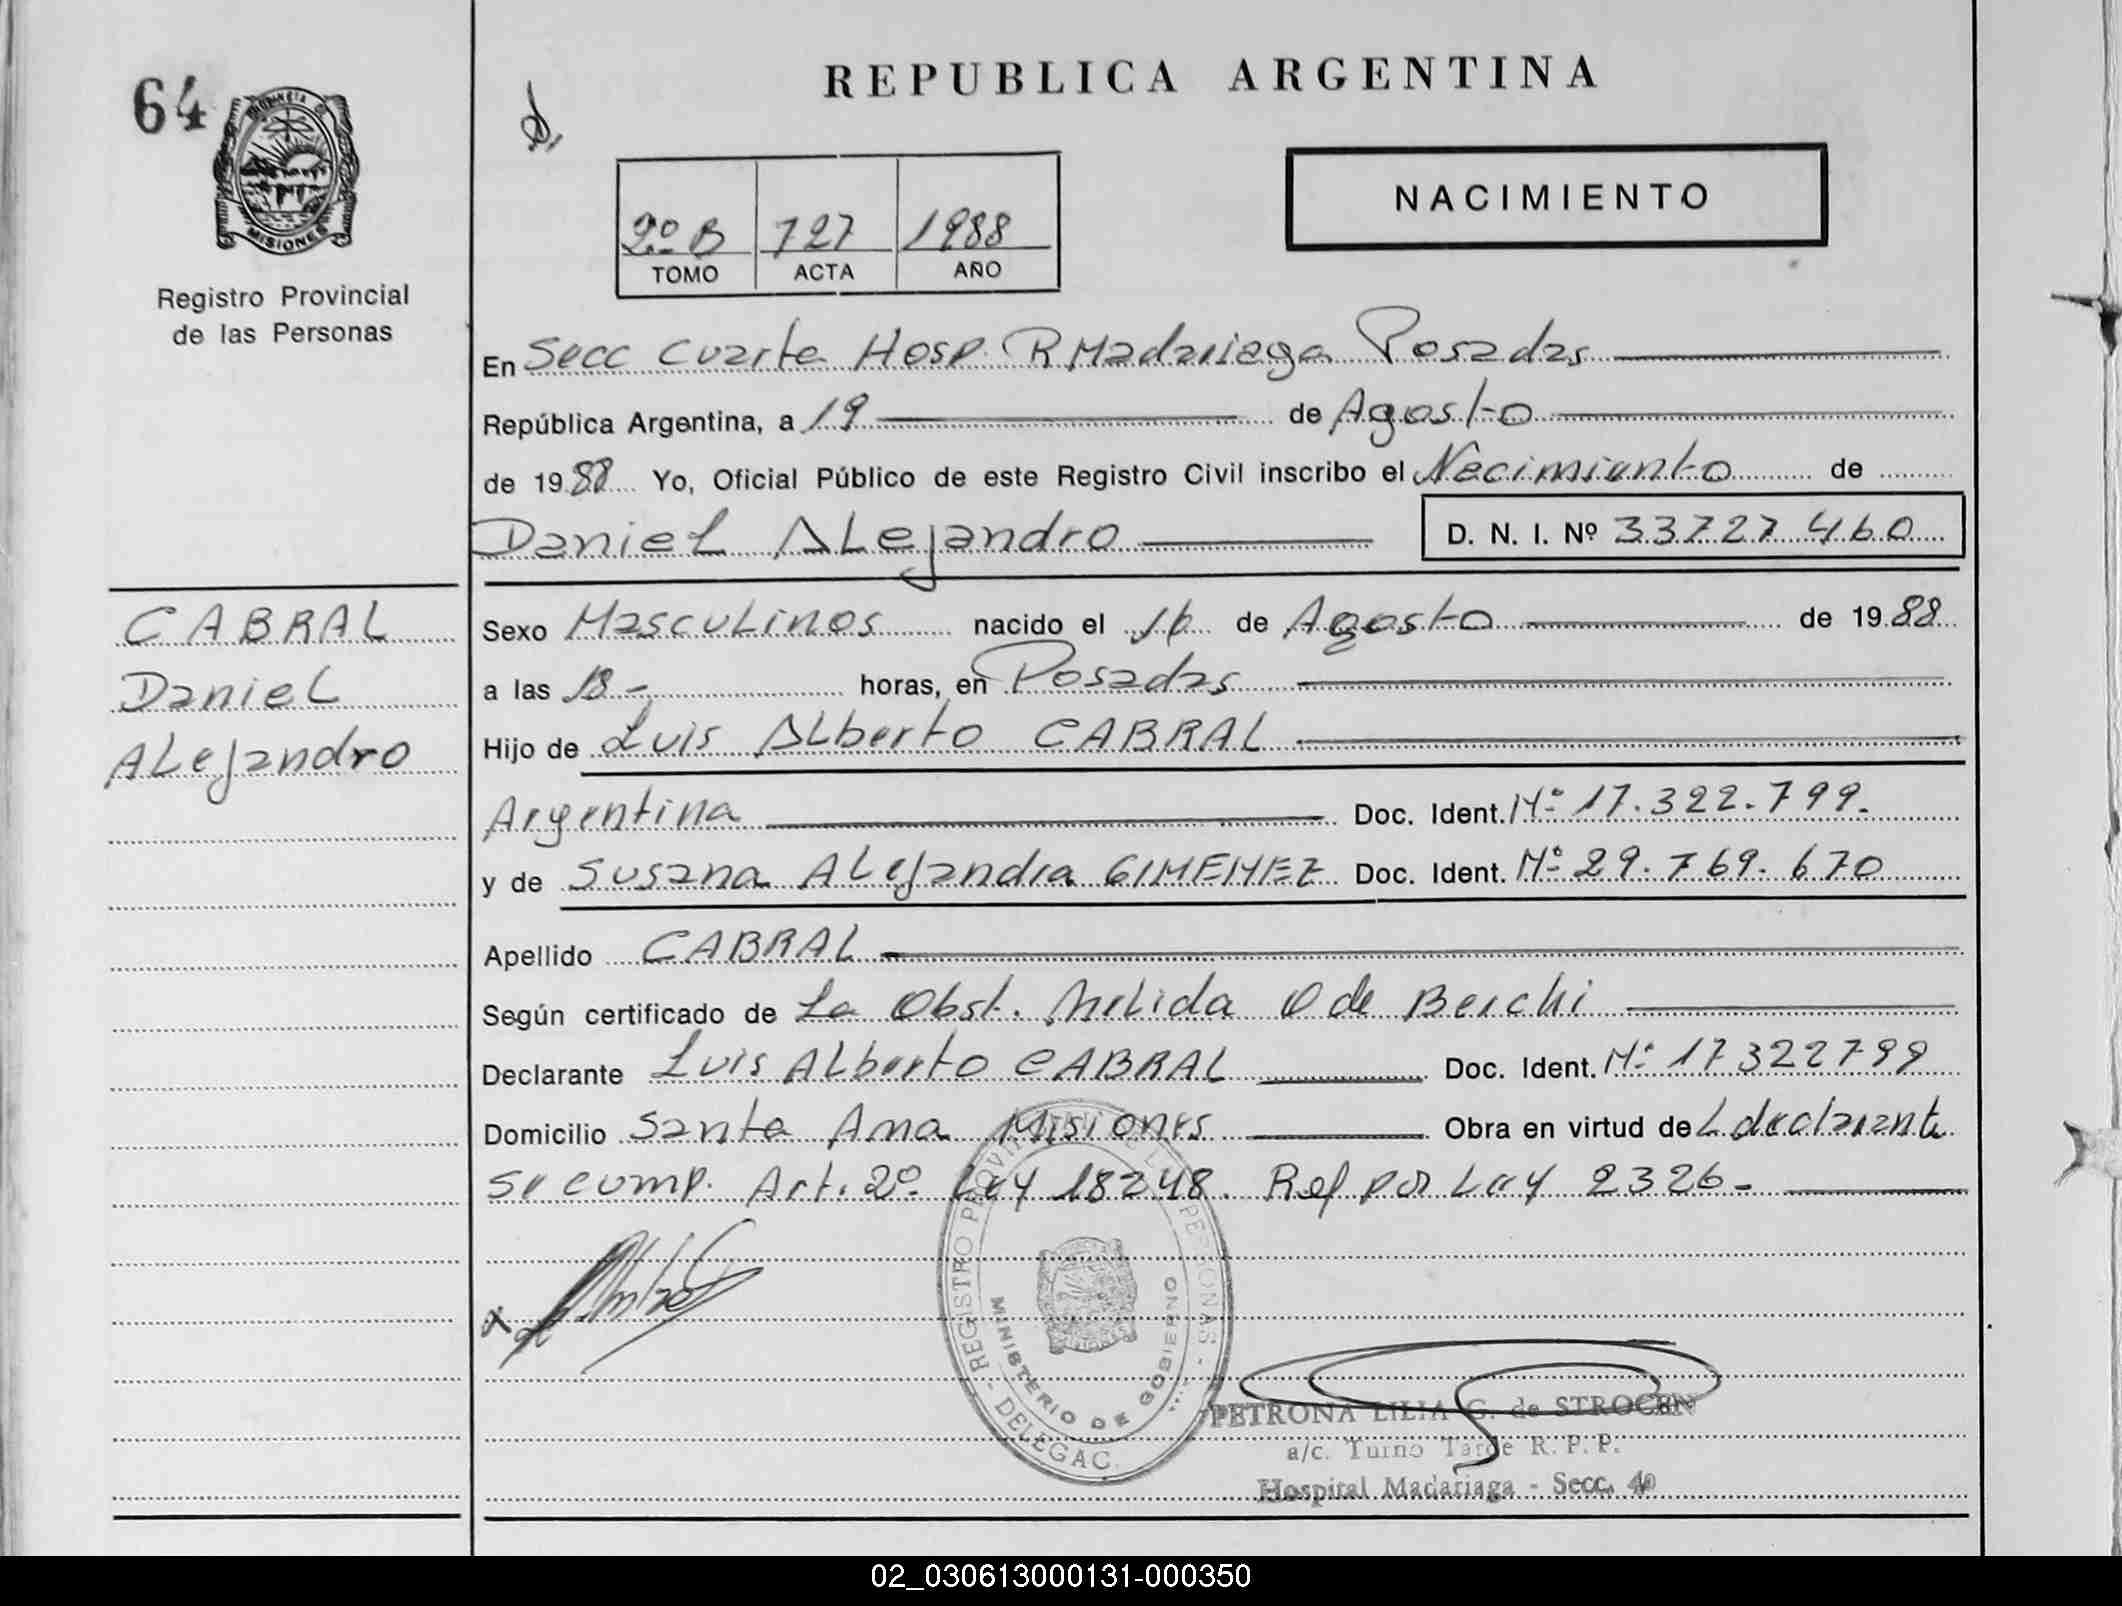 64
PROVINCIA DE
MISIONES
Registro Provincial
de las Personas
REPUBLICA ARGENTINA
NACIMIENTO
2º B 727 1988
TOMO ACTA AÑO
En Secc Cuarta Hosp. R Madariaga Posadas
República Argentina, a 19 de Agosto
de 1988 Yo, Oficial Público de este Registro Civil inscribo el Nacimiento de
Daniel Alejandro D. N. I. Nº 33727460
CABRAL
Daniel
Alejandro
Sexo Masculinos nacido el 16 de Agosto de 1988
a las 18- horas, en Posadas
Hijo de Luis Alberto CABRAL
Argentina Doc. Ident. Nº 17.322.799.
y de Susana Alejandra GIMENEZ Doc. Ident. Nº 29.769.670
Apellido CABRAL
Según certificado de La Obst. Nelida O de Berchi
Declarante Luis Alberto CABRAL Doc. Ident. Nº 17322799
Domicilio Santa Ana Misiones Obra en virtud de L declarante
Se cump. Art. 2º Ley 18248. Ref por Ley 2326-
REGISTRO PROVINCIAL DE LAS PERSONAS - DELEGAC.
MINISTERIO DE GOBIERNO
PETRONA LILIA G. de STROCEN
a/c. Turno Tarde R. P. P.
Hospital Madariaga - Secc. 4º
02_030613000131-000350